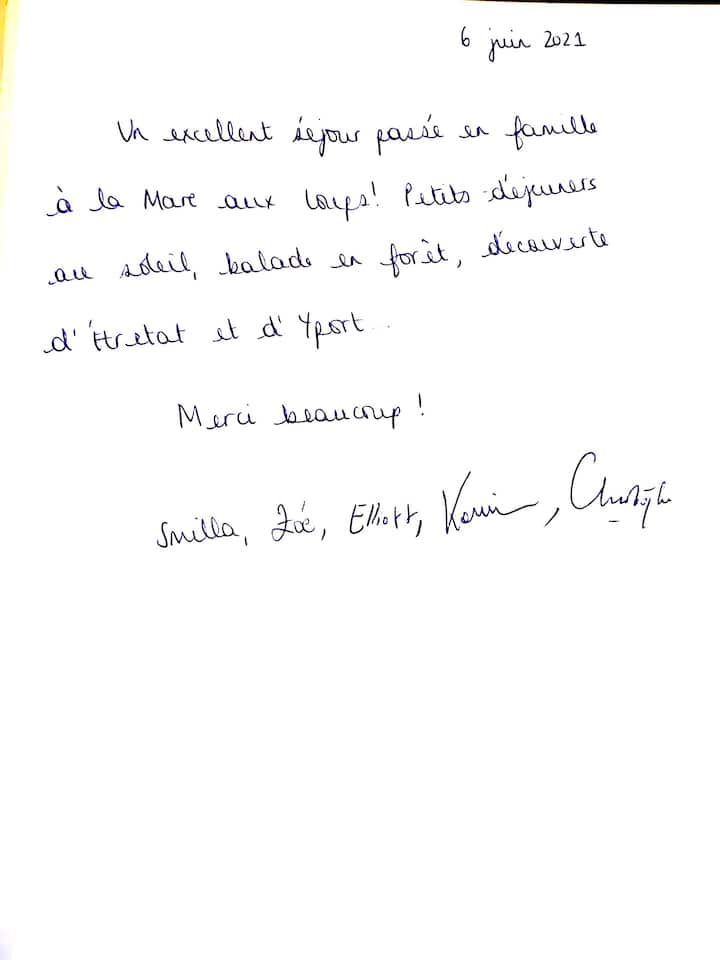 6 juin 2021
Un excellent séjour passé en famille
à la Mare aux Loups! Petits déjeuners
au soleil, balade en forêt, découverte
d'Étretat et d'Yport...
Merci beaucoup !
Smilla, Zoé, Elliott, Karin, Christophe